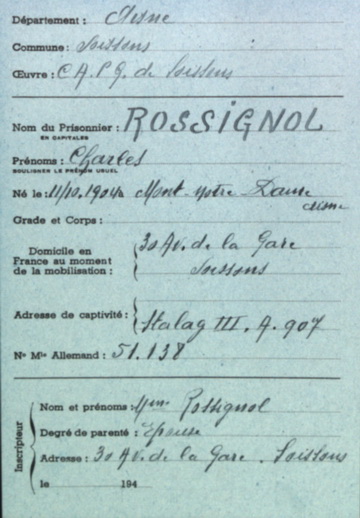 Département : Aisne
Commune : Soissons
Œuvre : C.A.P.G. de Soissons
Nom du Prisonnier : ROSSIGNOL
EN CAPITALES
Prénoms : Charles
SOULIGNER LE PRÉNOM USUEL
Né le : 11/10.1904 à Mont notre Dame
Aisne
Grade et Corps :
Domicile en
France au moment
de la mobilisation :
30 Av. de la Gare
Soissons
Adresse de captivité :
Stalag III. A. 907
N° Mle Allemand : 51.138
Inscripteur
Nom et prénoms : Mme Rossignol
Degré de parenté : Epouse
Adresse : 30 Av. de la Gare . Soissons
le 194